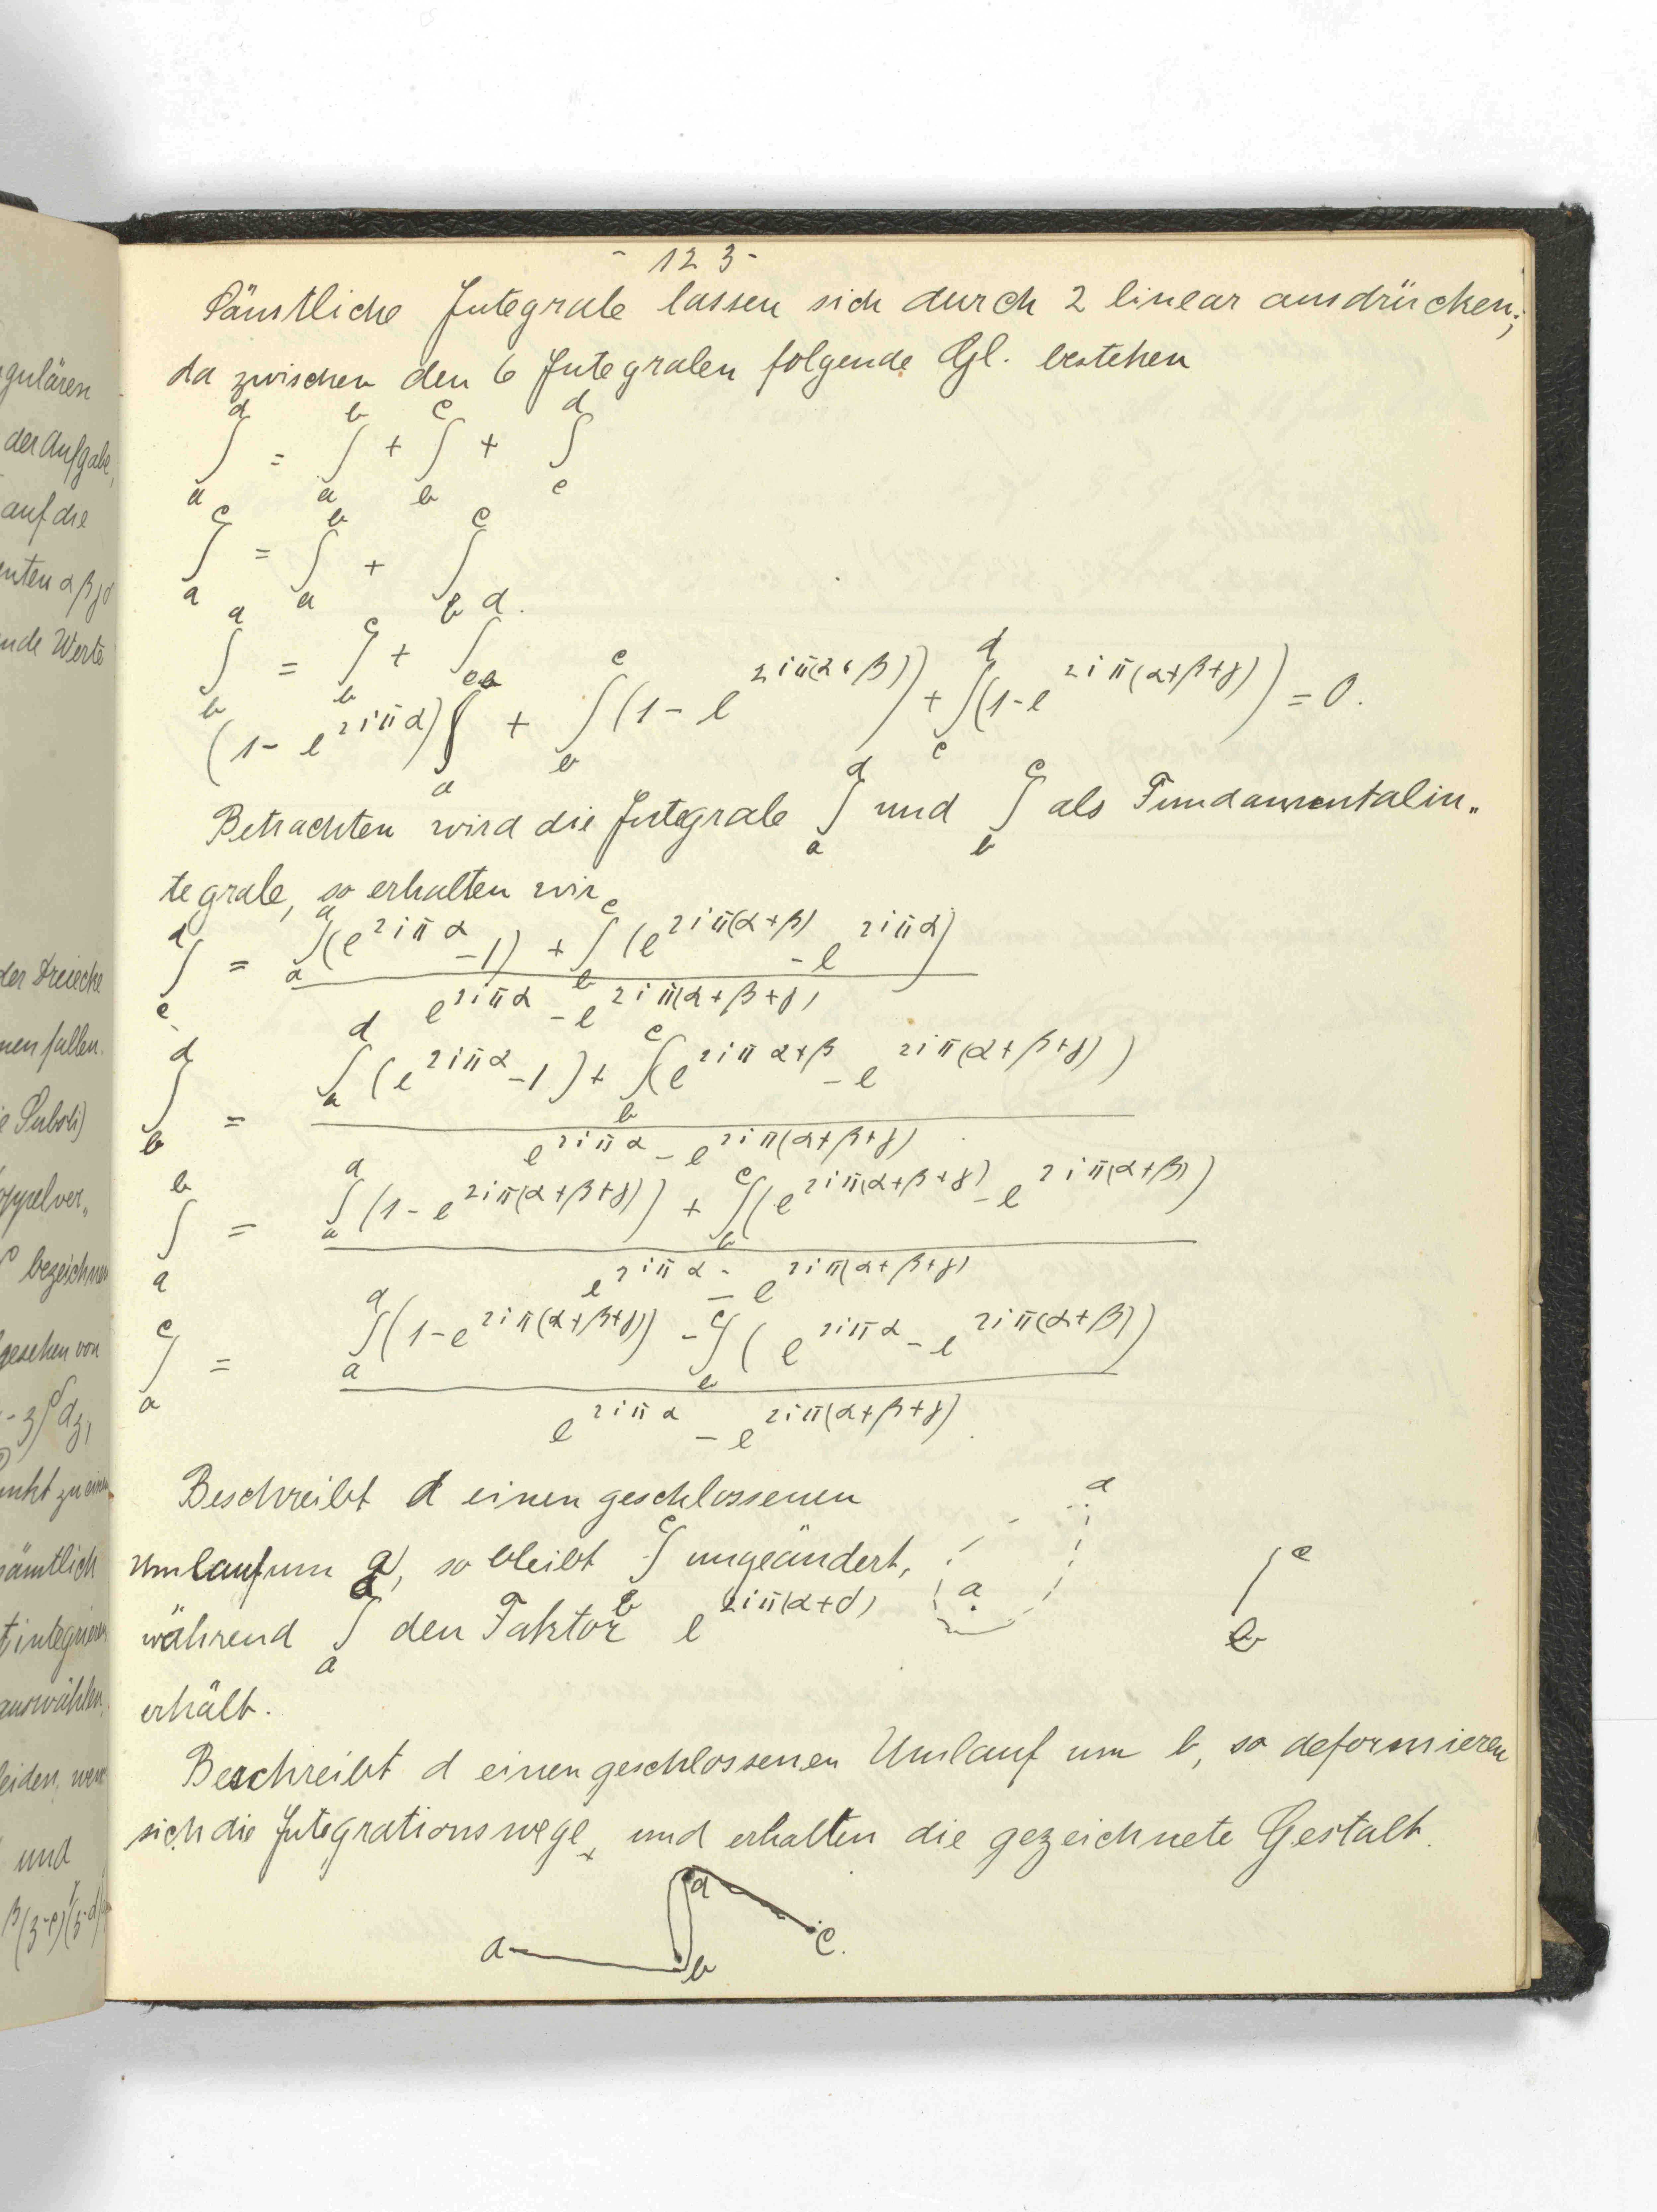 gulären
der Aufgabe,
auf die
enten α β γ δ
nde Werte
der Dreiecke
nen fallen.
oppelver„
bezeichnen
gesehen von
unkt zu einem
sämtlich
integrieren
auswählen,
leiden, wenn
und
- 123 -
Sämtliche Integrale lassen sich durch 2 linear ausdrücken;
da zwischen den 6 Integralen folgende Gl. bestehen
∫_a^d = ∫_a^b + ∫_b^c + ∫_c^d
∫_a^c = ∫_a^b + ∫_b^c
∫_b^d = ∫_b^c + ∫_c^d.
(1 - e^{2iπα}) ∫_a^b + ∫_b^c (1 - e^{2iπ(α+β)}) + ∫_c^d (1 - e^{2iπ(α+β+γ)}) = 0.
Betrachten wird die Integrale ∫_a^d und ∫_b^c als Fundamentalin„
tegrale, so erhalten wir
∫_c^d = (∫_a^d (e^{2iπα} - 1) + ∫_b^c (e^{2iπ(α+β)} - e^{2iπα})) / (e^{2iπα} - e^{2iπ(α+β+γ)})
∫_b^d = (∫_a^d (e^{2iπα} - 1) + ∫_b^c (e^{2iπα+β} - e^{2iπ(α+β+γ)})) / (e^{2iπα} - e^{2iπ(α+β+γ)})
∫_a^b = (∫_a^d (1 - e^{2iπ(α+β+γ)}) + ∫_b^c (e^{2iπ(α+β+γ)} - e^{2iπ(α+β)})) / (e^{2iπα} - e^{2iπ(α+β+γ)})
∫_a^c = (∫_a^d (1 - e^{2iπ(α+β+γ)}) - ∫_b^c (e^{2iπα} - e^{2iπ(α+β)})) / (e^{2iπα} - e^{2iπ(α+β+γ)}).
Beschreibt d einen geschlossenen
Umlauf um a, so bleibt ∫_b^c ungeändert,
während ∫_a den Faktor e^{2iπ(α+δ)}
erhält.
d
a
c
b
Beschreibt d einen geschlossenen Umlauf um b, so deformieren
sich die Integrationswege, und erhalten die gezeichnete Gestalt.
d
a
b
c.